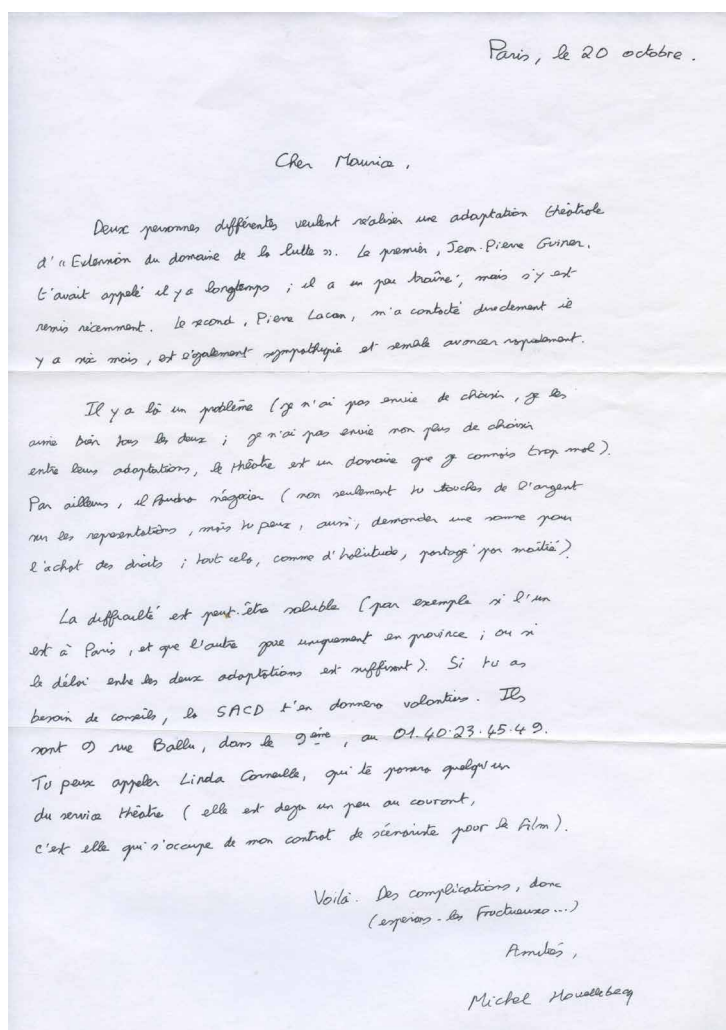 Paris, le 20 octobre.
Cher Maurice,
Deux personnes différentes veulent réaliser une adaptation théâtrale
d'« Extension du domaine de la lutte ». Le premier, Jean-Pierre Guiner,
t'avait appelé il y a longtemps ; il a un peu traîné, mais s'y est
remis récemment. Le second, Pierre Lacan, m'a contacté directement il
y a six mois, est également sympathique et semble avancer rapidement.
Il y a là un problème (je n'ai pas envie de choisir, je les
aime bien tous les deux ; je n'ai pas envie non plus de choisir
entre leurs adaptations, le théâtre est un domaine que je connais trop mal).
Par ailleurs, il faudra négocier (non seulement tu touches de l'argent
sur les représentations, mais tu peux, aussi, demander une somme pour
l'achat des droits ; tout cela, comme d'habitude, partagé par moitié)
La difficulté est peut-être soluble (par exemple si l'un
est à Paris, et que l'autre joue uniquement en province ; ou si
le délai entre les deux adaptations est suffisant). Si tu as
besoin de conseils, la SACD t'en donnera volontiers. Ils
sont 9 rue Ballu, dans le 9ème, au 01.40.23.45.49.
Tu peux appeler Linda Corneille, qui te passera quelqu'un
du service théâtre (elle est déjà un peu au courant,
c'est elle qui s'occupe de mon contrat de scénariste pour le film).
Voilà. Des complications, donc
(espérons-les fructueuses...)
Amitiés,
Michel Houellebecq